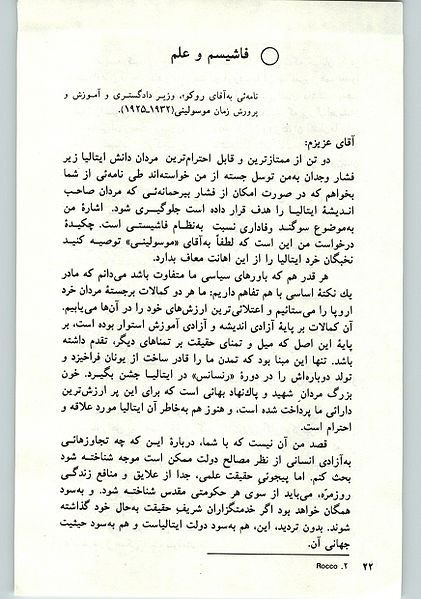 فاشیسم و علم
نامه‌ئی به‌آقای روکو۲، وزیر دادگستری و آموزش و
پرورش زمان موسولینی(۱۹۳۲ـ۱۹۲۵).
آقای عزیزم:
دو تن از ممتازترین و قابل احترام‌ترین مردان دانش ایتالیا زیر
فشار وجدان به‌من توسل جسته از من خواسته‌اند طی نامه‌ئی از شما
بخواهم که در صورت امکان از فشار بیرحمانه‌ئی که مردان صاحب
اندیشهٔ ایتالیا را هدف قرار داده است جلوگیری شود. اشارهٔ من
به‌موضوع سوگند وفاداری نسبت به‌نظام فاشیستی است. چکیدهٔ
درخواست من این است که لطفاً به‌آقای «موسولینی» توصیه کنید
نخبگان خرد ایتالیا را از این اهانت معاف بدارد.
هر قدر هم که باورهای سیاسی ما متفاوت باشد می‌دانم که مادر
یك نکتهٔ اساسی با هم تفاهم داریم: ما هر دو کمالات برجستهٔ مردان خرد
اروپا را می‌ستائیم و اعتلائی‌ترین ارزش‌های خود را در آن‌ها می‌یابیم.
آن کمالات بر پایهٔ آزادی اندیشه و آزادی آموزش استوار بوده است، بر
پایهٔ این اصل که میل و تمنای حقیقت بر تمناهای دیگر، تقدم داشته
باشد. تنها این مبنا بود که تمدن ما را قادر ساخت از یونان فراخیزد و
تولد دوباره‌اش را در دورهٔ «رنسانس» در ایتالیا جشن بگیرد. خون
بزرگ مردان شهید و پاك‌نهاد بهائی است که برای این پر ارزش‌ترین
دارائی ما پرداخت شده است، و هنوز هم به‌خاطر آن ایتالیا مورد علاقه و
احترام است.
قصد من آن نیست که با شما، دربارهٔ این که چه تجاوزهائی
به‌آزادی انسانی از نظر مصالح دولت ممکن است موجه شناخته شود
بحث کنم. اما پیجوئیِ حقیقت علمی، جدا از علایق و منافع زندگی
روزمرّه، می‌باید از سوی هر حکومتی مقدس شناخته شود. و به‌سود
همگان خواهد بود اگر خدمتگزاران شریفِ حقیقت به‌حال خود گذاشته
شوند. بدون تردید، این، هم به‌سود دولت ایتالیاست و هم به‌سود حیثیت
جهانی آن.
۲ـ Rocco
۲۲